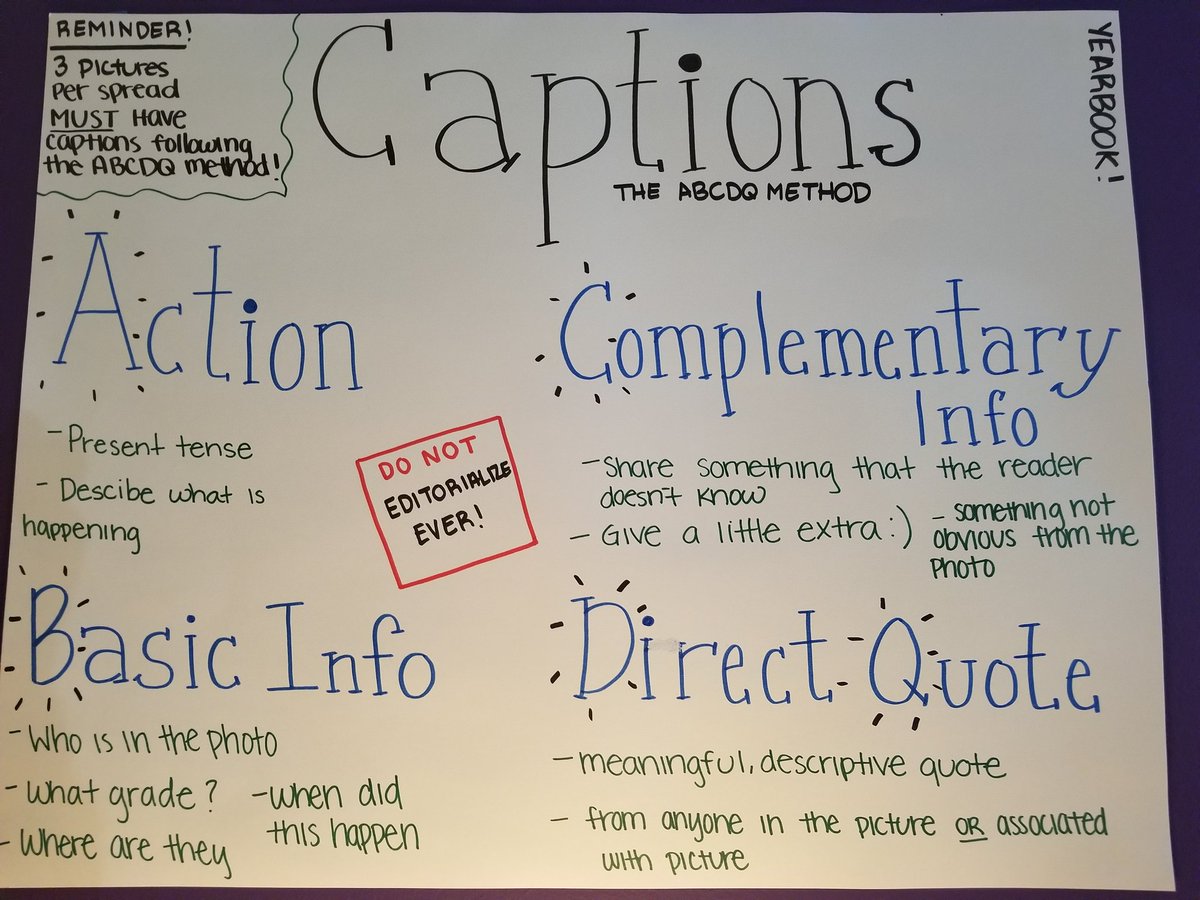 REMINDER!
3 Pictures
Per spread
MUST Have
captions following
the ABCDQ method!
Captions
THE ABCDQ METHOD
YEARBOOK!
Action
- Present tense
- Descibe what is
happening
Complementary
Info
- Share something that the reader
doesn't know
- Give a little extra :)
- something not
obvious from the
Photo
DO NOT
EDITORIALIZE
EVER!
Basic Info
- Who is in the photo
- What grade?
- Where are they
- when did
this happen
Direct Quote
- meaningful, descriptive quote
- from anyone in the picture OR associated
with picture